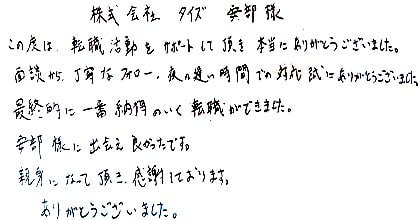 株式会社 タイズ 安部様
この度は、転職活動をサポートして頂き本当にありがとうございました。
面談から、丁寧なフォロー、夜の遅い時間での対応誠にありがとうございました。
最終的に一番納得のいく転職ができました。
安部様に出会え良かったです。
親身になって頂き、感謝しております。
ありがとうございました。